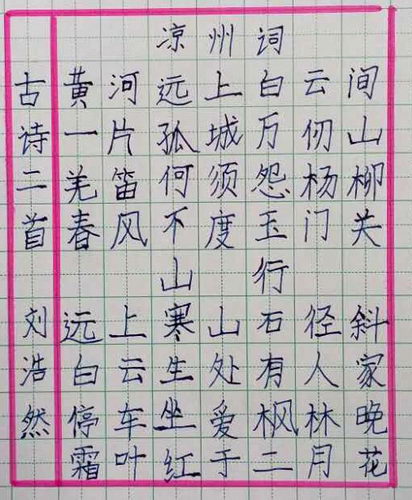 古诗二首 刘浩然
凉州词
黄河远上白云间
一片孤城万仞山
羌笛何须怨杨柳
春风不度玉门关
山行
远上寒山石径斜
白云生处有人家
停车坐爱枫林晚
霜叶红于二月花